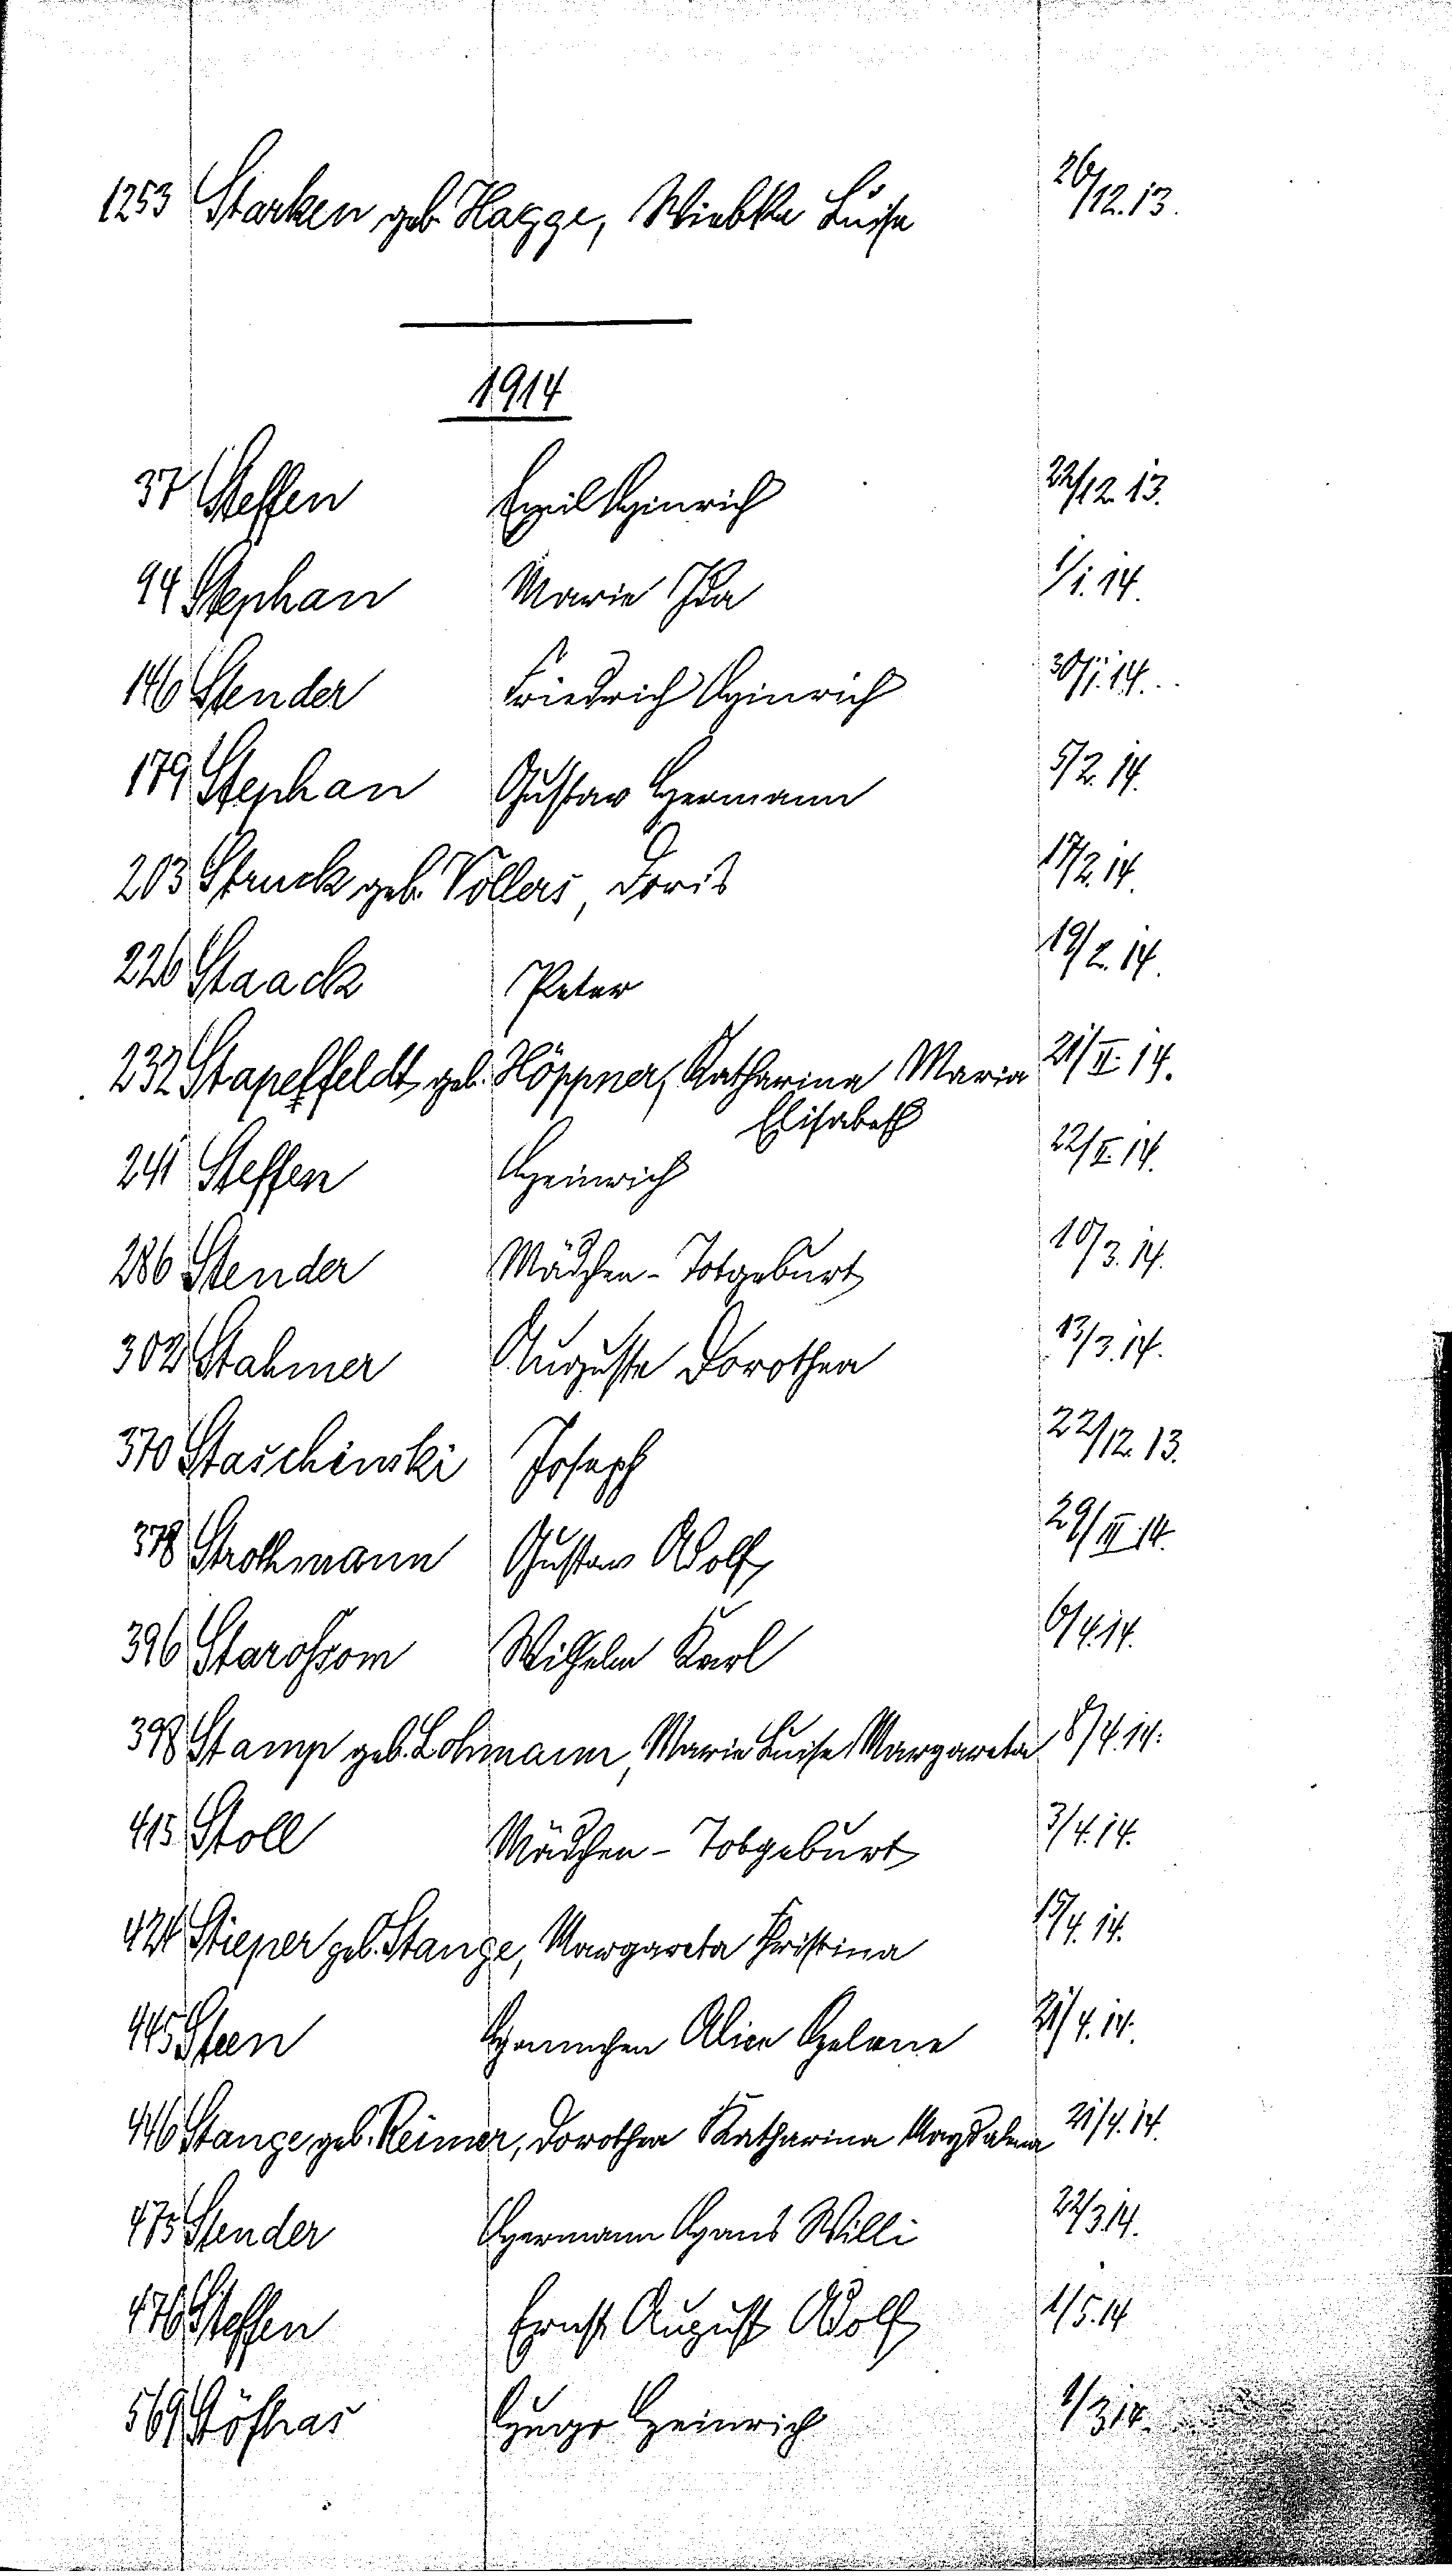 1253 Starken geb. Hagge, Wiebke Luise 26/12.13.
1914
37 Steffen Emil Hinrich 22/12.13.
94 Stephan Marie Ida 1/1.14.
146 Stender Friedrich Hinrich 30/1.14.
179 Stephan Gustav Hermann 5/2.14.
203 Struck geb. Vollers, Doris 17/2.14.
226 Staack Peter 19/2.14.
232 Stapelfeldt, geb. Höppner, Katharina Maria 21/II.14.
Elisabeth
241 Steffen Heinrich 22/II.14.
286 Stender Mädchen-Totgeburt 10/3.14.
302 Stahmer Auguste Dorothea 13/3.14.
370 Staschinski Joseph 22/12.13.
378 Strothmann Gustav Adolf 29/III.14.
396 Starossom Wilhelm Karl 6/4.14.
398 Stamp geb. Lohmann, Marie Luise Margareta 8/4.14.
415 Stoll Mädchen-Totgeburt 3/4.14.
424 Stieper geb. Stange, Margareta Christina 15/4.14.
445 Steen Hannchen Alice Helene 21/4.14.
446 Stange geb. Reimer, Dorothea Katharina Magdalena 21/4.14.
475 Stender Hermann Hans Willi 22/3.14.
476 Steffen Ernst August Adolf 1/5.14
569 Stöfhas Hugo Heinrich 1/3.14.